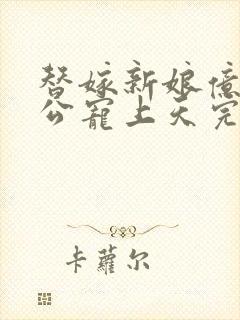 替嫁新娘億
公寵上天完
卡蘿尔